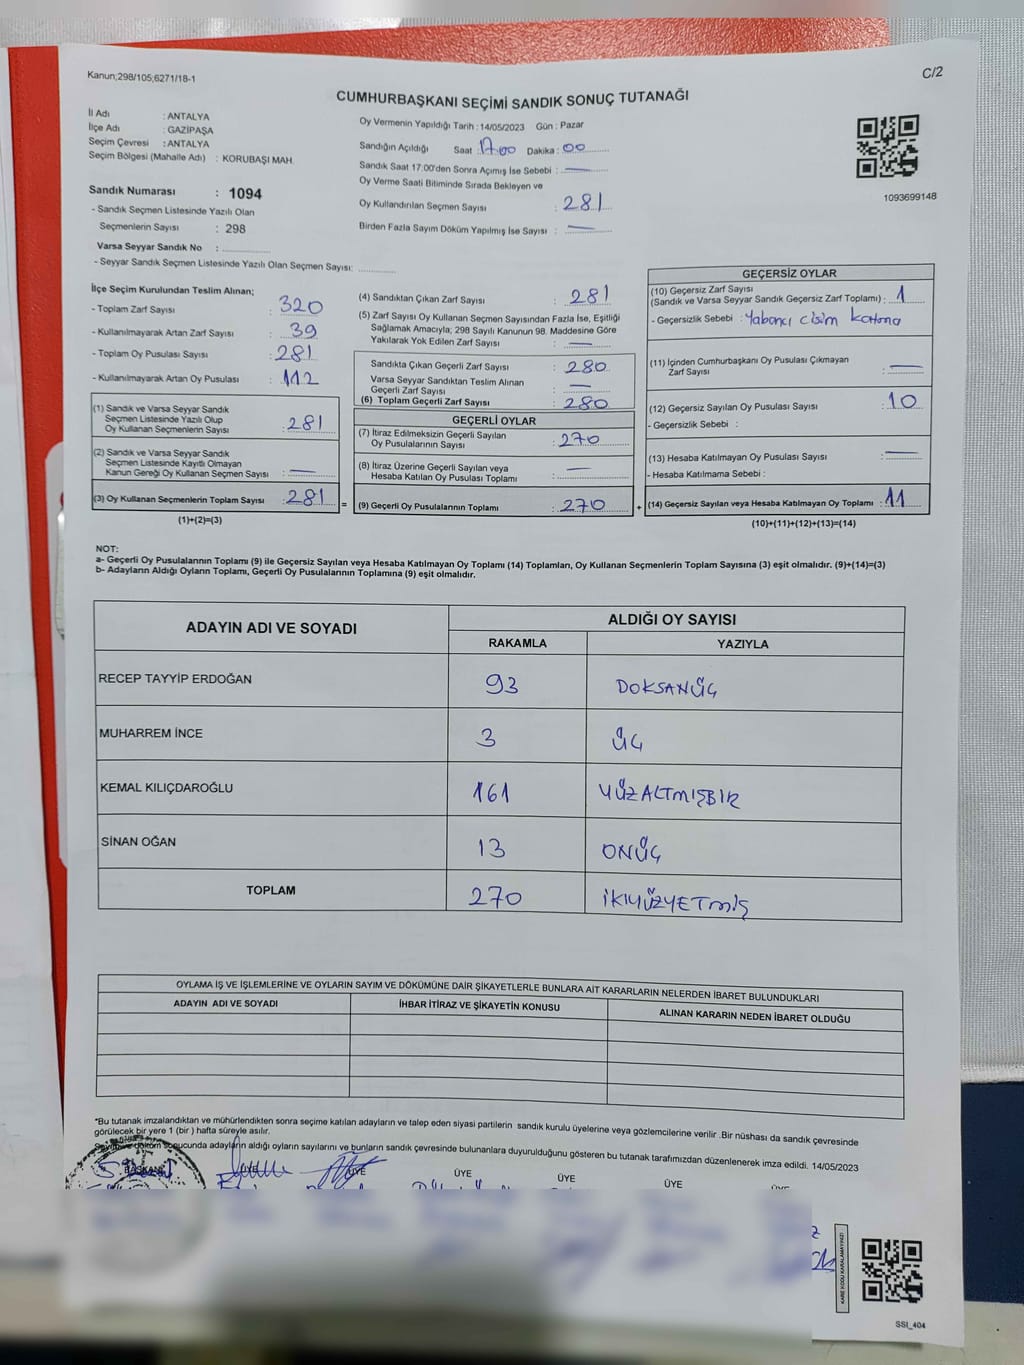 Kanun;298/105;6271/18-1
C/2
CUMHURBAŞKANI SEÇİMİ SANDIK SONUÇ TUTANAĞI
İl Adı : ANTALYA
İlçe Adı : GAZİPAŞA
Seçim Çevresi : ANTALYA
Seçim Bölgesi (Mahalle Adı) : KORUBAŞI MAH.
Sandık Numarası : 1094
- Sandık Seçmen Listesinde Yazılı Olan
Seçmenlerin Sayısı : 298
Varsa Seyyar Sandık No : ..............
- Seyyar Sandık Seçmen Listesinde Yazılı Olan Seçmen Sayısı: ...........
Oy Vermenin Yapıldığı Tarih : 14/05/2023 Gün : Pazar
Sandığın Açıldığı Saat : 17.00 Dakika : 00
Sandık Saat 17:00'den Sonra Açımış İse Sebebi : —
Oy Verme Saati Bitiminde Sırada Bekleyen ve
Oy Kullandırılan Seçmen Sayısı : 281
Birden Fazla Sayım Döküm Yapılmış İse Sayısı : —
1093699148
İlçe Seçim Kurulundan Teslim Alınan;
- Toplam Zarf Sayısı : 320
- Kullanılmayarak Artan Zarf Sayısı : 39
- Toplam Oy Pusulası Sayısı : 281
- Kullanılmayarak Artan Oy Pusulası : 112
(1) Sandık ve Varsa Seyyar Sandık
Seçmen Listesinde Yazılı Olup
Oy Kullanan Seçmenlerin Sayısı : 281
(2) Sandık ve Varsa Seyyar Sandık
Seçmen Listesinde Kayıtlı Olmayan
Kanun Gereği Oy Kullanan Seçmen Sayısı : —
(3) Oy Kullanan Seçmenlerin Toplam Sayısı : 281 =
(1)+(2)=(3)
(4) Sandıktan Çıkan Zarf Sayısı : 281
(5) Zarf Sayısı Oy Kullanan Seçmen Sayısından Fazla İse, Eşitliği
Sağlamak Amacıyla; 298 Sayılı Kanunun 98. Maddesine Göre
Yakılarak Yok Edilen Zarf Sayısı : —
Sandıkta Çıkan Geçerli Zarf Sayısı : 280
Varsa Seyyar Sandıktan Teslim Alınan
Geçerli Zarf Sayısı : —
(6) Toplam Geçerli Zarf Sayısı : 280
GEÇERLİ OYLAR
(7) İtiraz Edilmeksizin Geçerli Sayılan
Oy Pusulalarının Sayısı : 270
(8) İtiraz Üzerine Geçerli Sayılan veya
Hesaba Katılan Oy Pusulası Toplamı : —
(9) Geçerli Oy Pusulalarının Toplamı : 270 +
GEÇERSİZ OYLAR
(10) Geçersiz Zarf Sayısı
(Sandık ve Varsa Seyyar Sandık Geçersiz Zarf Toplamı) : 1
- Geçersizlik Sebebi : Yabancı cisim katma
(11) İçinden Cumhurbaşkanı Oy Pusulası Çıkmayan
Zarf Sayısı : —
(12) Geçersiz Sayılan Oy Pusulası Sayısı : 10
- Geçersizlik Sebebi :
(13) Hesaba Katılmayan Oy Pusulası Sayısı : —
- Hesaba Katılmama Sebebi :
(14) Geçersiz Sayılan veya Hesaba Katılmayan Oy Toplamı : 11
(10)+(11)+(12)+(13)=(14)
NOT:
a- Geçerli Oy Pusulalarının Toplamı (9) ile Geçersiz Sayılan veya Hesaba Katılmayan Oy Toplamı (14) Toplamları, Oy Kullanan Seçmenlerin Toplam Sayısına (3) eşit olmalıdır. (9)+(14)=(3)
b- Adayların Aldığı Oyların Toplamı, Geçerli Oy Pusulalarının Toplamına (9) eşit olmalıdır.
ADAYIN ADI VE SOYADI
ALDIĞI OY SAYISI
RAKAMLA YAZIYLA
RECEP TAYYİP ERDOĞAN 93 DOKSANÜÇ
MUHARREM İNCE 3 ÜÇ
KEMAL KILIÇDAROĞLU 161 YÜZALTMIŞBİR
SİNAN OĞAN 13 ONÜÇ
TOPLAM 270 İKİYÜZYETMİŞ
OYLAMA İŞ VE İŞLEMLERİNE VE OYLARIN SAYIM VE DÖKÜMÜNE DAİR ŞİKAYETLERLE BUNLARA AİT KARARLARIN NELERDEN İBARET BULUNDUKLARI
ADAYIN ADI VE SOYADI İHBAR İTİRAZ VE ŞİKAYETİN KONUSU ALINAN KARARIN NEDEN İBARET OLDUĞU
*Bu tutanak imzalandıktan ve mühürlendikten sonra seçime katılan adayların ve talep eden siyasi partilerin sandık kurulu üyelerine veya gözlemcilerine verilir .Bir nüshası da sandık çevresinde
görülecek bir yere 1 (bir ) hafta süreyle asılır.
döküm sonucunda adayların aldığı oyların sayılarını ve bunların sandık çevresinde bulunanlara duyurulduğunu gösteren bu tutanak tarafımızdan düzenlenerek imza edildi. 14/05/2023
BAŞKAN ÜYE ÜYE ÜYE ÜYE ÜYE ÜYE
KARE KODU KARALAMAYINIZ!
SSI_404